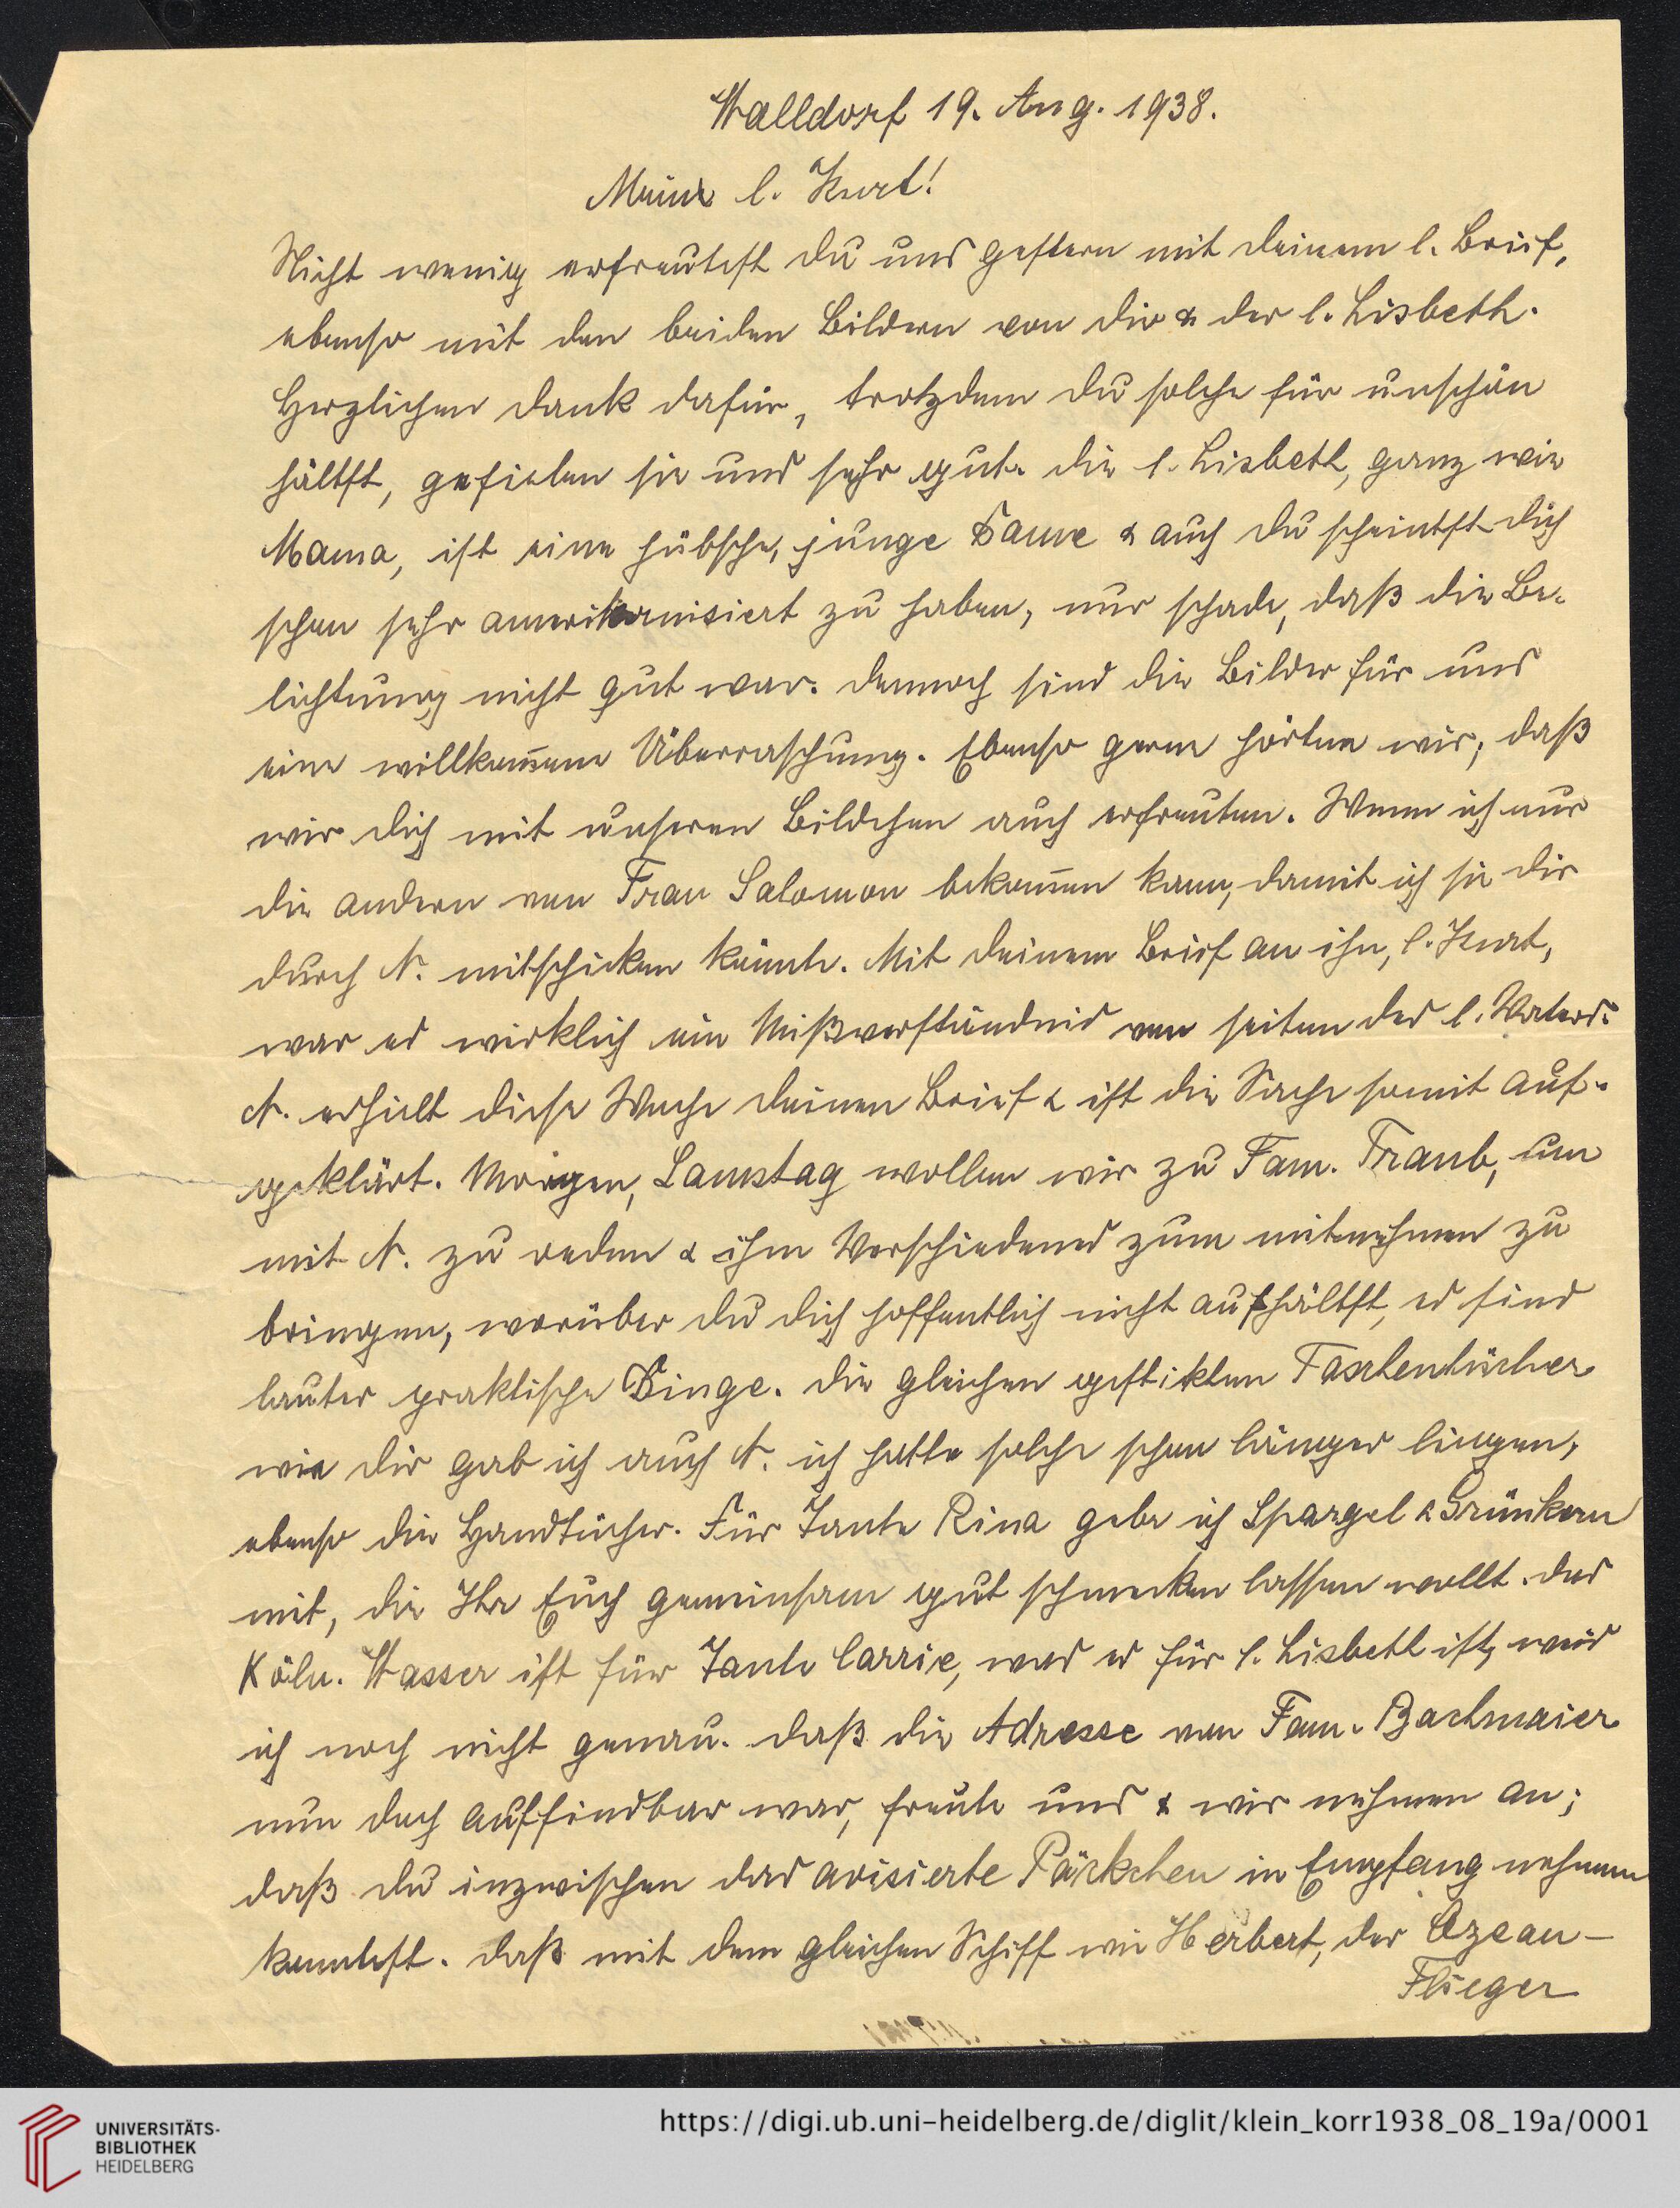 Walldorf 19. Aug. 1938.
Mein l. Kurt!
Nicht wenig erfreutest du uns gestern mit deinem l. Brief,
ebenso mit den beiden Bildern von dir & der l. Lisbeth.
Herzlichen Dank dafür, trotzdem du solche für unschön
hältst, gefielen sie uns sehr gut. die l. Lisbeth, ganz wie
Mama, ist eine hübsche, junge Dame & auch du scheinst dich
schon sehr amerikanisiert zu haben, nur schade, daß die Be-
lichtung nicht gut war. Dennoch sind die Bilder für uns
eine willkom̅ene Überraschung. Ebenso gerne hörten wir, daß
wir dich mit unseren Bildchen auch erfreuten. Wenn ich nur
die andern von Frau Salomon bekom̅en kann, damit ich sie dir
durch N. mitschicken könnte. Mit deinem Brief an ihn, l. Kurt,
war es wirklich ein Mißverständnis von seiten des l. Vaters.
N. erhielt diese Woche deinen Brief & ist die Sache somit auf-
geklärt. Morgen, Samstag wollen wir zu Fam. Traub, um
mit N. zu reden & ihm Verschiedenes zum mitnehmen zu
bringen, worüber du dich hoffentlich nicht aufhältst, es sind
lauter praktische Dinge. Die gleichen gestikten Taschentücher
wie dir gab ich auch N. ich hatte solche schon länger liegen,
ebenso die Handtücher. Für Tante Rina gebe ich Spargel & Grünkern
mit, die Ihr Euch gemeinsam gut schmecken lassen wollt. Das
Köln. Wasser ist für Tante Carrie, was es für l. Lisbeth ist, weis
ich noch nicht genau. Daß die Adresse von Fam. Bachmaier
nun doch auffindbar war, freute uns & wir nehmen an;
daß du inzwischen das avisierte Päckchen in Empfang nehmen
konntest. Daß mit dem gleichen Schiff wie Herbert, der Ozean-
Flieger
UNIVERSITÄTS-
BIBLIOTHEK
HEIDELBERG
https://digi.ub.uni-heidelberg.de/diglit/klein_korr1938_08_19a/0001